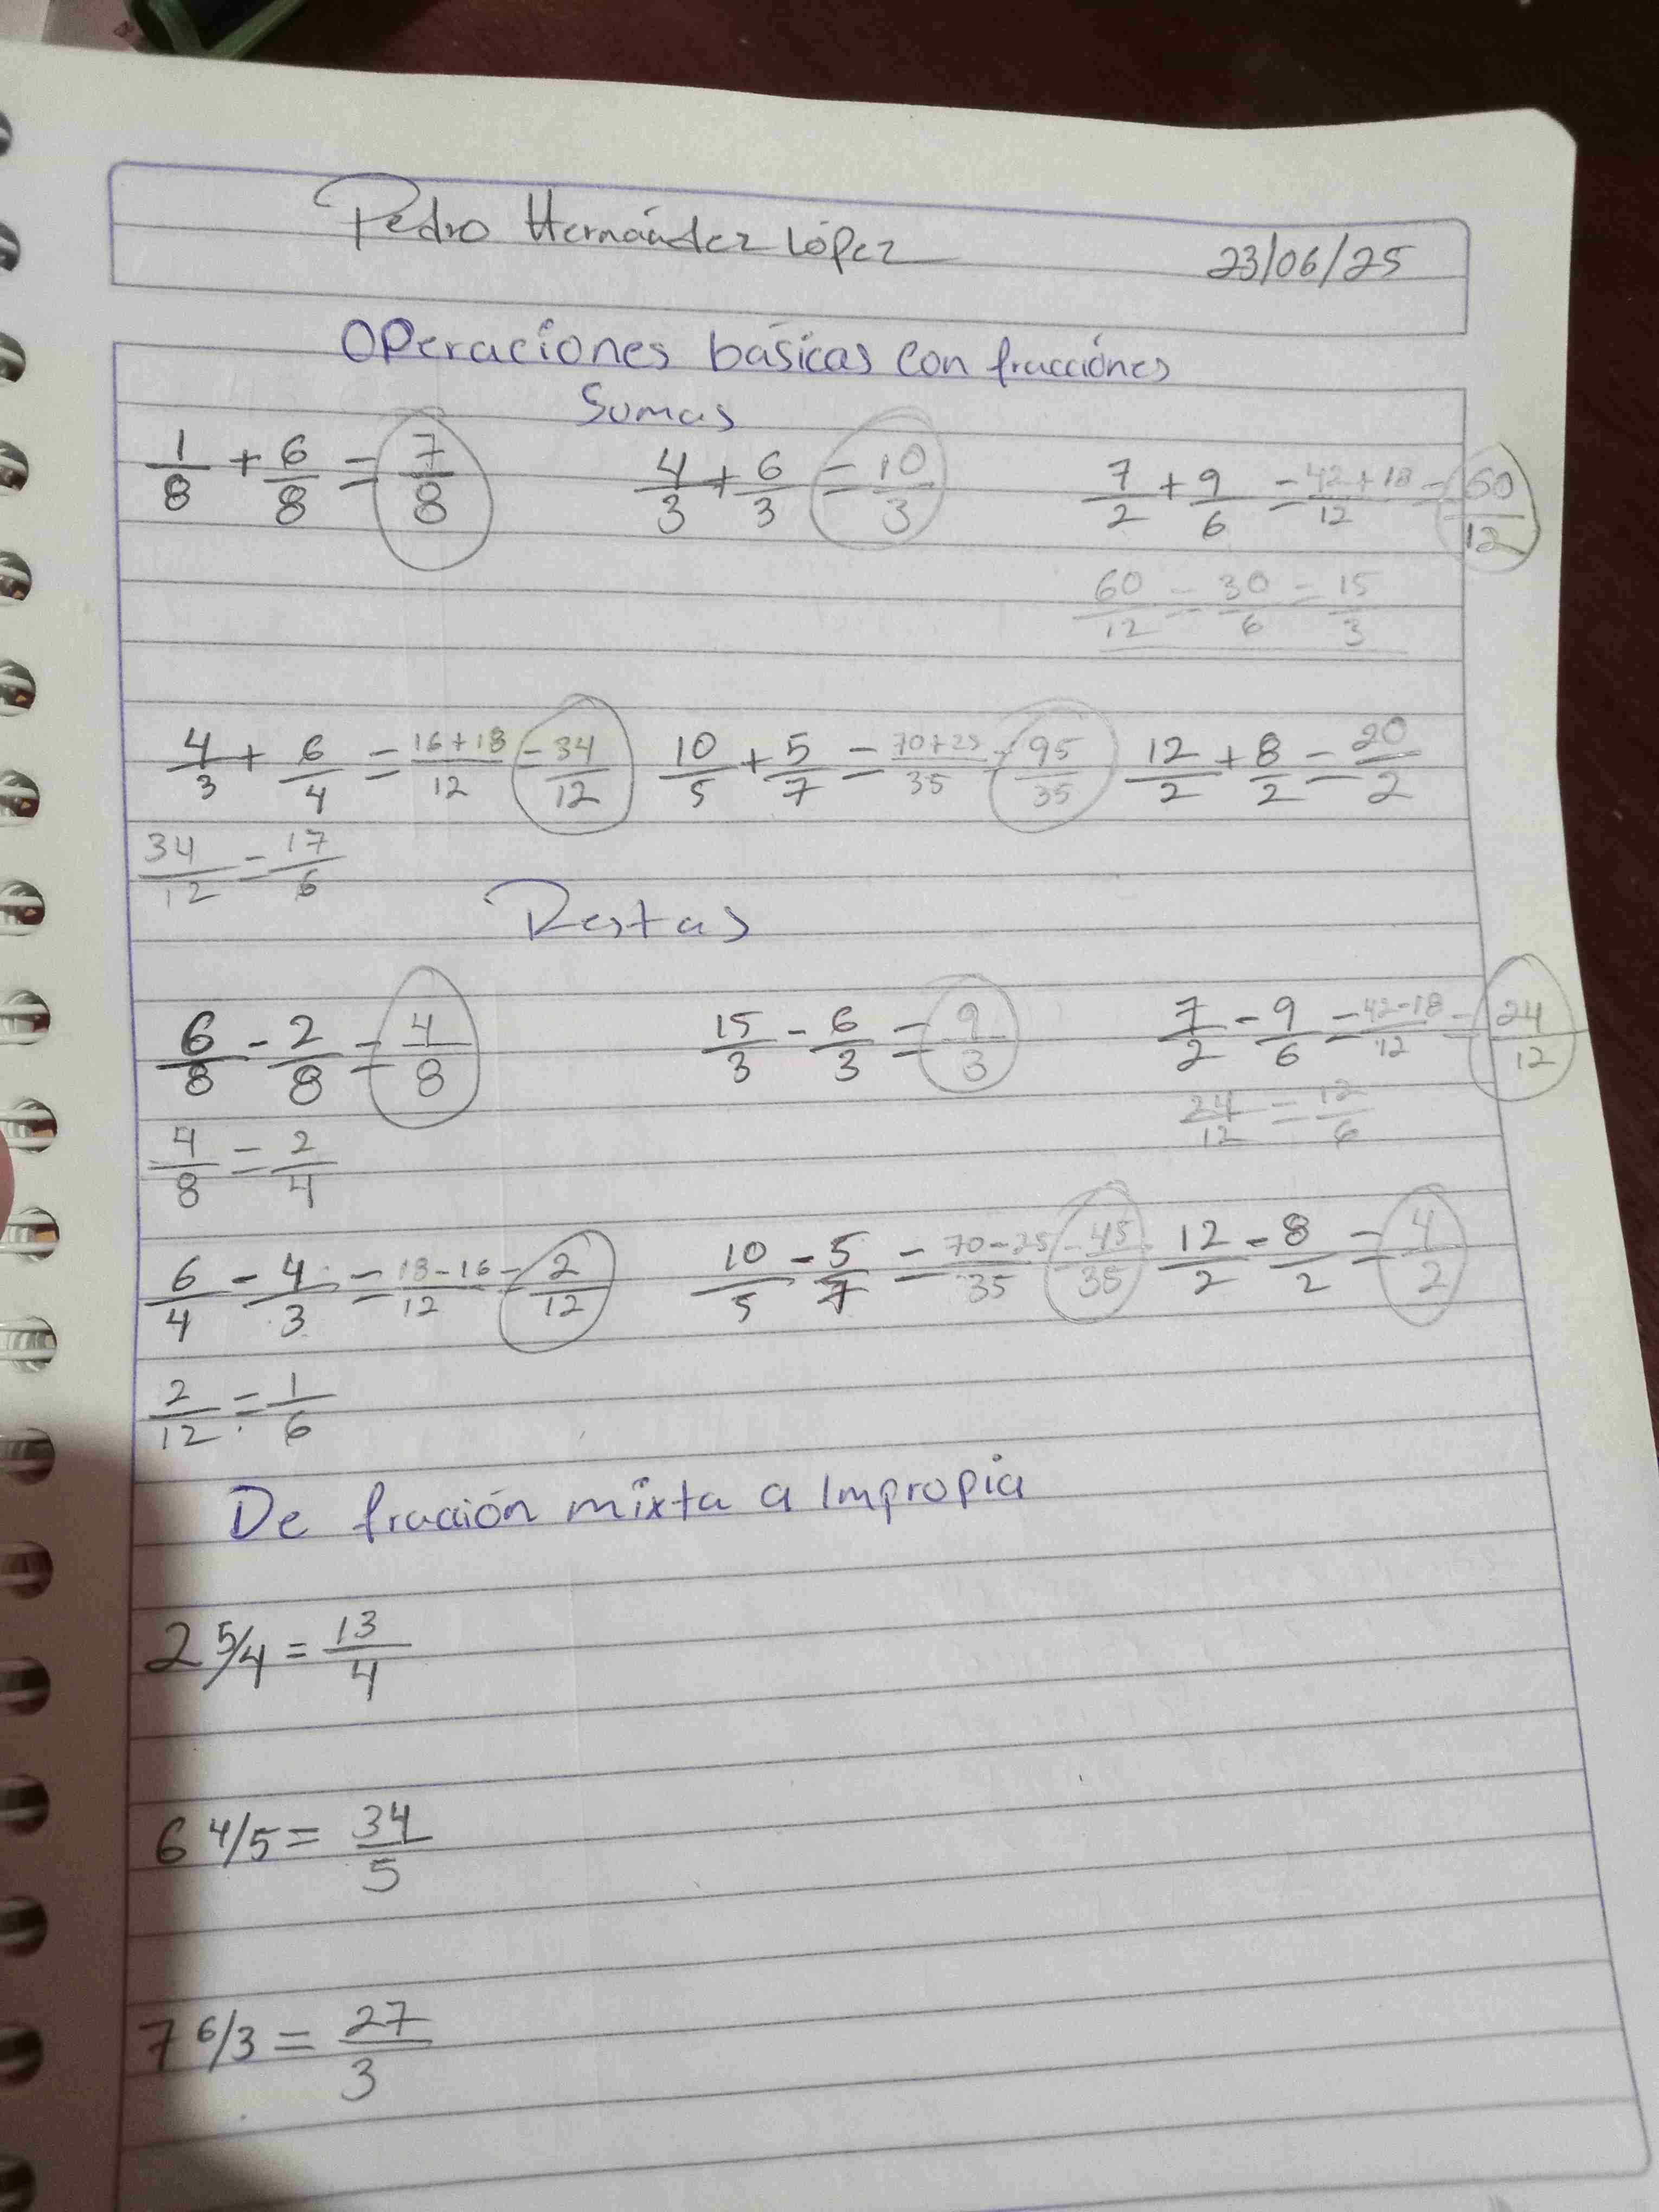 Pedro Hernández López 23/06/25
Operaciones básicas con fracciónes
Sumas
1/8 + 6/8 = 7/8 4/3 + 6/3 = 10/3 7/2 + 9/6 = 42+18/12 = 60/12
60/12 = 30/6 = 15/3
4/3 + 6/4 = 16+18/12 = 34/12 10/5 + 5/7 = 70+25/35 = 95/35 12/2 + 8/2 = 20/2
34/12 = 17/6
Restas
6/8 - 2/8 = 4/8 15/3 - 6/3 = 9/3 7/2 - 9/6 = 42-18/12 = 24/12
24/12 = 12/6
4/8 = 2/4
6/4 - 4/3 = 18-16/12 = 2/12 10/5 - 5/7 = 70-25/35 = 45/35 12/2 - 8/2 = 4/2
2/12 = 1/6
De fracción mixta a Impropia
2 5/4 = 13/4
6 4/5 = 34/5
7 6/3 = 27/3